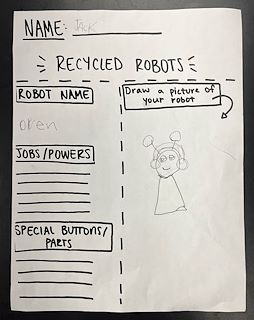 NAME: JACK
RECYCLED ROBOTS
ROBOT NAME
Draw a picture of
your robot
oren
JOBS/POWERS
SPECIAL BUTTONS/
PARTS